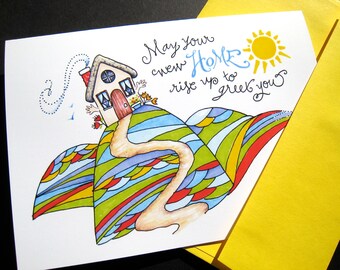 May your
new HOME
rise up to
greet you